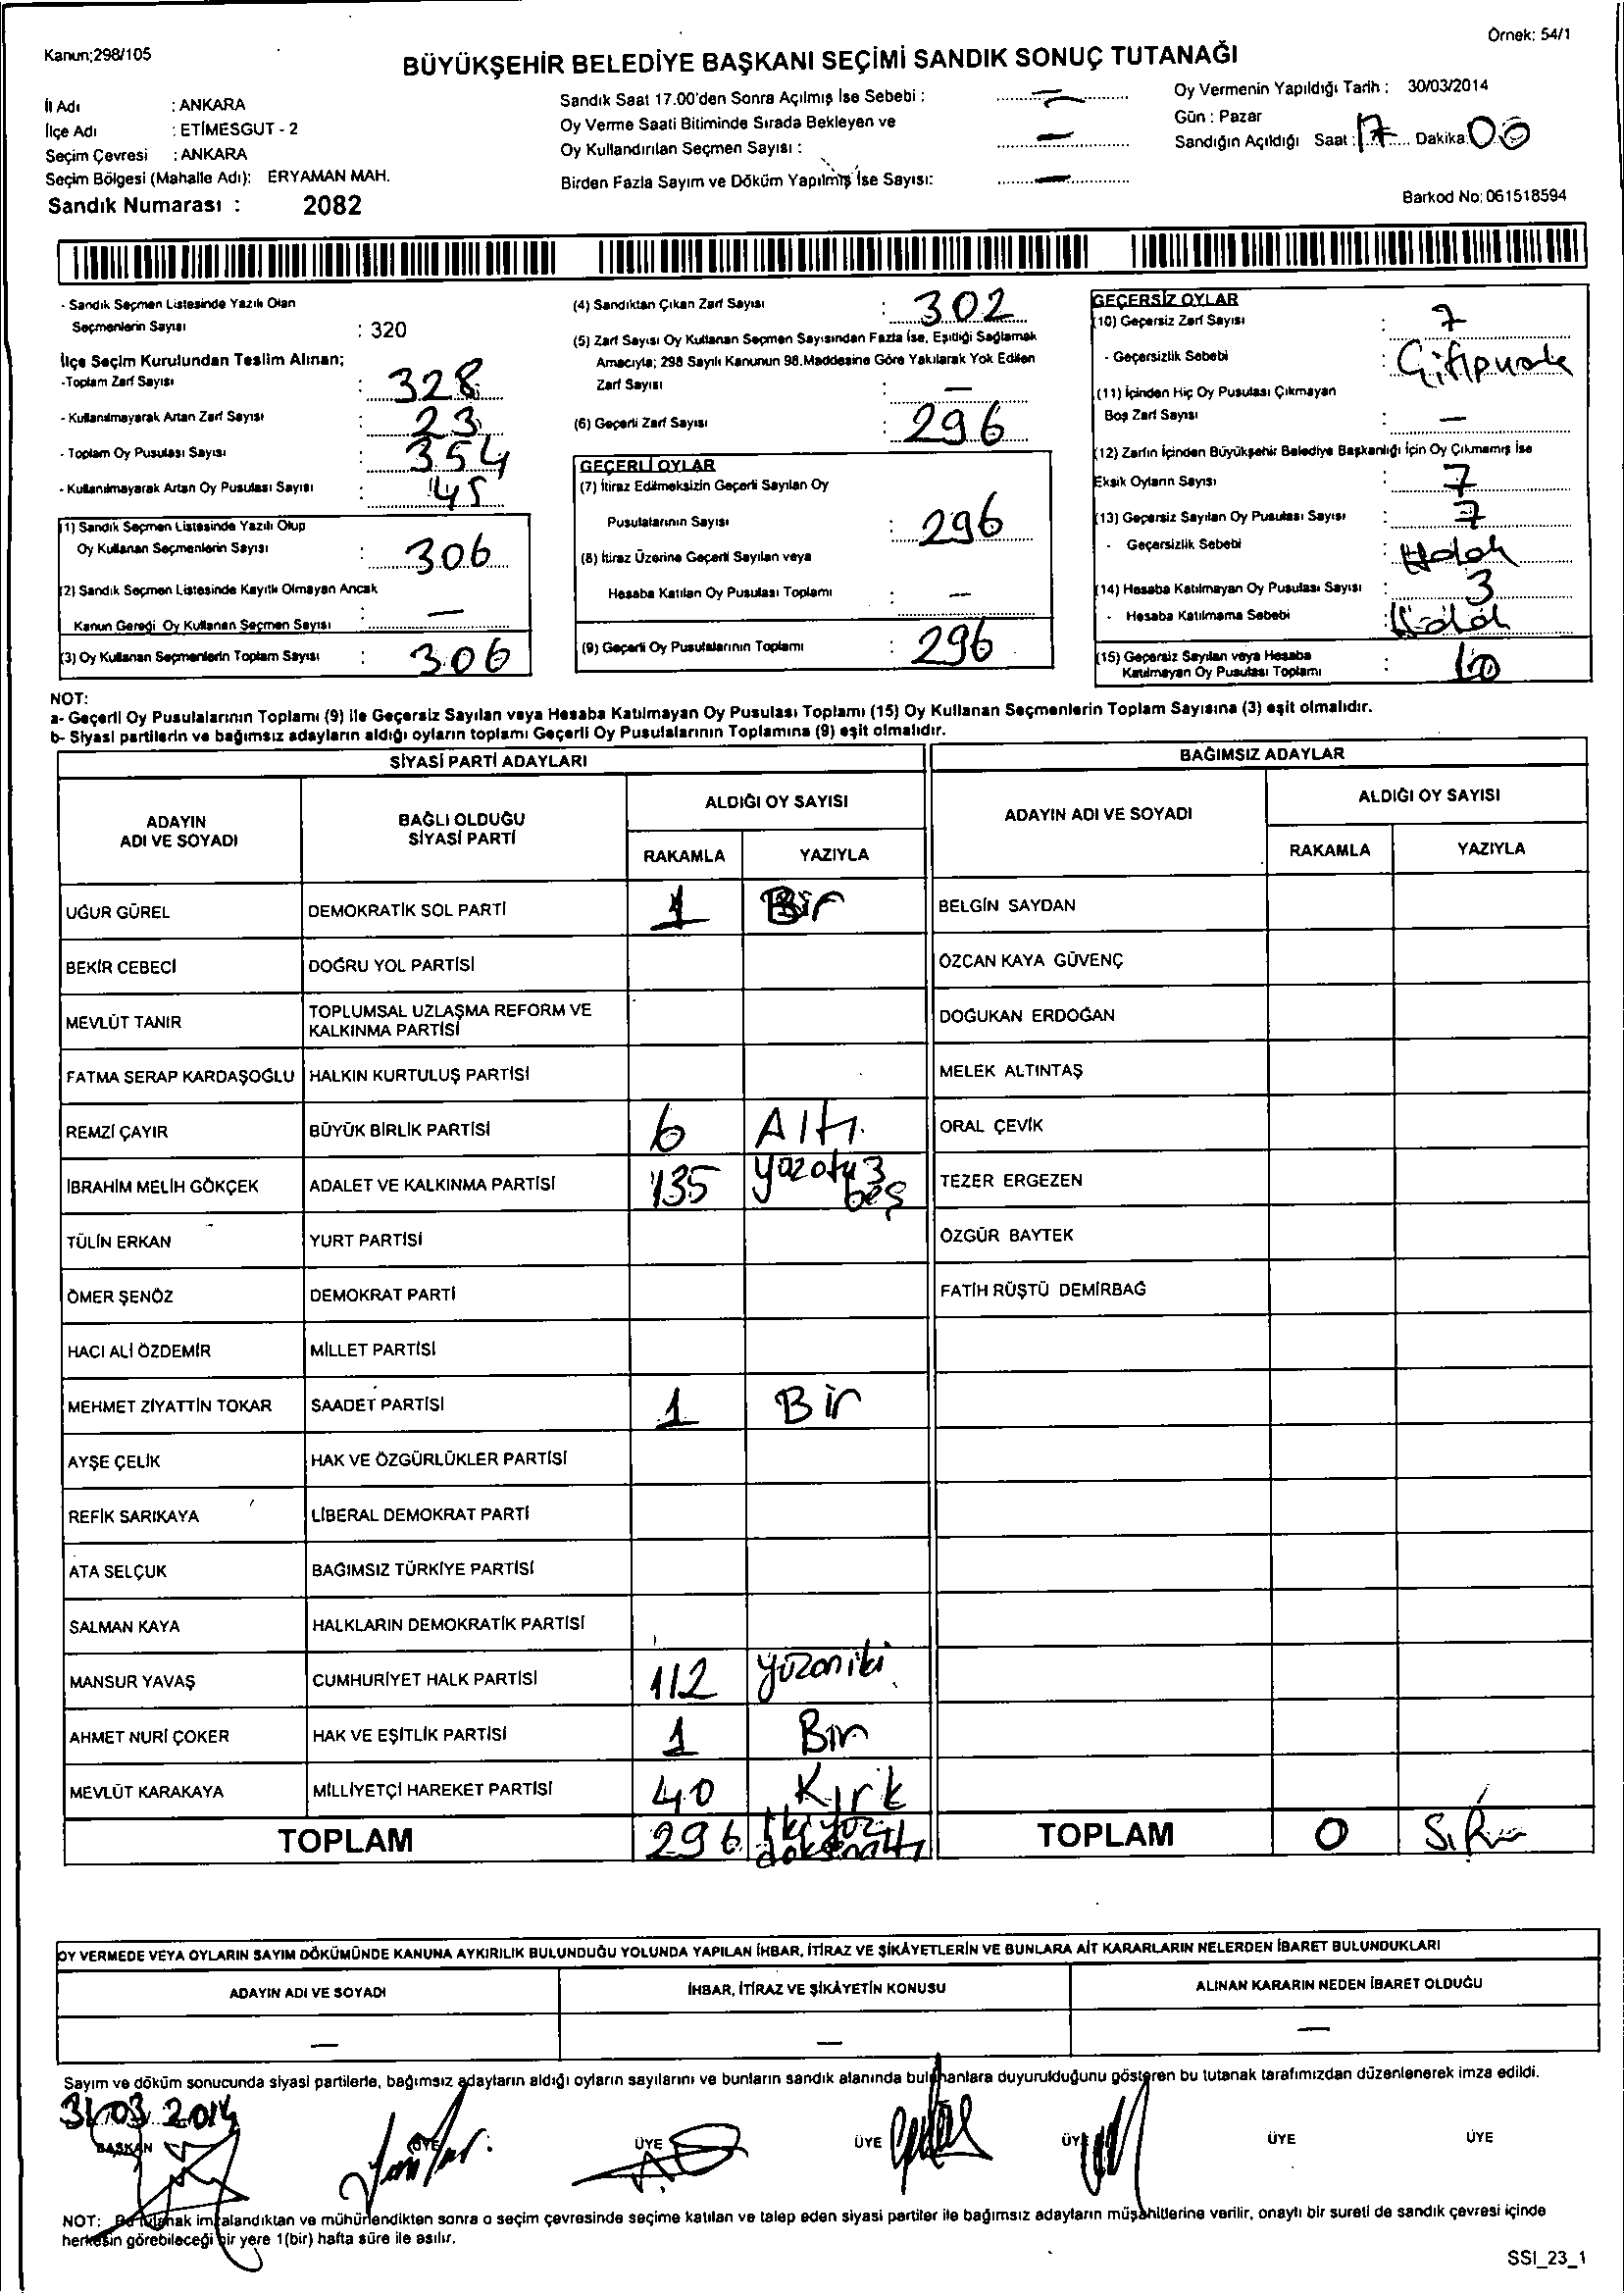 Kanun;298/105
Örnek: 54/1
BÜYÜKŞEHİR BELEDİYE BAŞKANI SEÇİMİ SANDIK SONUÇ TUTANAĞI
İl Adı : ANKARA
İlçe Adı : ETİMESGUT - 2
Seçim Çevresi : ANKARA
Seçim Bölgesi (Mahalle Adı): ERYAMAN MAH.
Sandık Numarası : 2082
Sandık Saat 17.00'den Sonra Açılmış İse Sebebi : —
Oy Verme Saati Bitiminde Sırada Bekleyen ve
Oy Kullandırılan Seçmen Sayısı : —
Birden Fazla Sayım ve Döküm Yapılmış İse Sayısı: —
Oy Vermenin Yapıldığı Tarih : 30/03/2014
Gün : Pazar
Sandığın Açıldığı Saat : 17 Dakika: 00
Barkod No: 061518594
- Sandık Seçmen Listesinde Yazılı Olan
Seçmenlerin Sayısı : 320
İlçe Seçim Kurulundan Teslim Alınan;
-Toplam Zarf Sayısı : 328
- Kullanılmayarak Artan Zarf Sayısı : 23
- Toplam Oy Pusulası Sayısı : 354
- Kullanılmayarak Artan Oy Pusulası Sayısı : 45
(1) Sandık Seçmen Listesinde Yazılı Olup
Oy Kullanan Seçmenlerin Sayısı : 306
(2) Sandık Seçmen Listesinde Kayıtlı Olmayan Ancak
Kanun Gereği Oy Kullanan Seçmen Sayısı : —
(3) Oy Kullanan Seçmenlerin Toplam Sayısı : 306
(4) Sandıktan Çıkan Zarf Sayısı : 302
(5) Zarf Sayısı Oy Kullanan Seçmen Sayısından Fazla İse, Eşitliği Sağlamak
Amacıyla; 298 Sayılı Kanunun 98.Maddesine Göre Yakılarak Yok Edilen
Zarf Sayısı : —
(6) Geçerli Zarf Sayısı : 296
GEÇERLİ OYLAR
(7) İtiraz Edilmeksizin Geçerli Sayılan Oy
Pusulalarının Sayısı : 296
(8) İtiraz Üzerine Geçerli Sayılan veya
Hesaba Katılan Oy Pusulası Toplamı : —
(9) Geçerli Oy Pusulalarının Toplamı : 296
GEÇERSİZ OYLAR
(10) Geçersiz Zarf Sayısı : 7
- Geçersizlik Sebebi :
(11) İçinden Hiç Oy Pusulası Çıkmayan
Boş Zarf Sayısı : —
(12) Zarfın İçinden Büyükşehir Belediye Başkanlığı İçin Oy Çıkmamış İse
Eksik Oyların Sayısı : 7
(13) Geçersiz Sayılan Oy Pusulası Sayısı : 7
- Geçersizlik Sebebi :
(14) Hesaba Katılmayan Oy Pusulası Sayısı : 3
- Hesaba Katılmama Sebebi :
(15) Geçersiz Sayılan veya Hesaba
Katılmayan Oy Pusulası Toplamı : 10
NOT:
a- Geçerli Oy Pusulalarının Toplamı (9) ile Geçersiz Sayılan veya Hesaba Katılmayan Oy Pusulası Toplamı (15) Oy Kullanan Seçmenlerin Toplam Sayısına (3) eşit olmalıdır.
b- Siyasi partilerin ve bağımsız adayların aldığı oyların toplamı Geçerli Oy Pusulalarının Toplamına (9) eşit olmalıdır.
SİYASİ PARTİ ADAYLARI
BAĞIMSIZ ADAYLAR
ADAYIN
ADI VE SOYADI
BAĞLI OLDUĞU
SİYASİ PARTİ
ALDIĞI OY SAYISI
RAKAMLA YAZIYLA
ADAYIN ADI VE SOYADI
ALDIĞI OY SAYISI
RAKAMLA YAZIYLA
UĞUR GÜREL DEMOKRATİK SOL PARTİ 1 Bir BELGİN SAYDAN
BEKİR CEBECİ DOĞRU YOL PARTİSİ ÖZCAN KAYA GÜVENÇ
MEVLÜT TANIR TOPLUMSAL UZLAŞMA REFORM VE
KALKINMA PARTİSİ DOĞUKAN ERDOĞAN
FATMA SERAP KARDAŞOĞLU HALKIN KURTULUŞ PARTİSİ MELEK ALTINTAŞ
REMZİ ÇAYIR BÜYÜK BİRLİK PARTİSİ 6 Altı ORAL ÇEVİK
İBRAHİM MELİH GÖKÇEK ADALET VE KALKINMA PARTİSİ 135 yüzotuz
beş TEZER ERGEZEN
TÜLİN ERKAN YURT PARTİSİ ÖZGÜR BAYTEK
ÖMER ŞENÖZ DEMOKRAT PARTİ FATİH RÜŞTÜ DEMİRBAĞ
HACI ALİ ÖZDEMİR MİLLET PARTİSİ
MEHMET ZİYATTİN TOKAR SAADET PARTİSİ 1 Bir
AYŞE ÇELİK HAK VE ÖZGÜRLÜKLER PARTİSİ
REFİK SARIKAYA LİBERAL DEMOKRAT PARTİ
ATA SELÇUK BAĞIMSIZ TÜRKİYE PARTİSİ
SALMAN KAYA HALKLARIN DEMOKRATİK PARTİSİ
MANSUR YAVAŞ CUMHURİYET HALK PARTİSİ 112 yüzoniki
AHMET NURİ ÇOKER HAK VE EŞİTLİK PARTİSİ 1 Bir
MEVLÜT KARAKAYA MİLLİYETÇİ HAREKET PARTİSİ 40 Kırk
TOPLAM 296 ikiyüz
doksanaltı TOPLAM 0 Sıfır
OY VERMEDE VEYA OYLARIN SAYIM DÖKÜMÜNDE KANUNA AYKIRILIK BULUNDUĞU YOLUNDA YAPILAN İHBAR, İTİRAZ VE ŞİKÂYETLERİN VE BUNLARA AİT KARARLARIN NELERDEN İBARET BULUNDUKLARI
ADAYIN ADI VE SOYADI İHBAR, İTİRAZ VE ŞİKÂYETİN KONUSU ALINAN KARARIN NEDEN İBARET OLDUĞU
— — —
Sayım ve döküm sonucunda siyasi partilerle, bağımsız adayların aldığı oyların sayılarını ve bunların sandık alanında bulunanlara duyurulduğunu gösteren bu tutanak tarafımızdan düzenlenerek imza edildi.
31.03.2014
BAŞKAN ÜYE ÜYE ÜYE ÜYE ÜYE ÜYE
NOT: Bu tutanak imzalandıktan ve mühürlendikten sonra o seçim çevresinde seçime katılan ve talep eden siyasi partiler ile bağımsız adayların müşahitlerine verilir, onaylı bir sureti de sandık çevresi içinde
herkesin görebileceği bir yere 1(bir) hafta süre ile asılır.
SSI_23_1